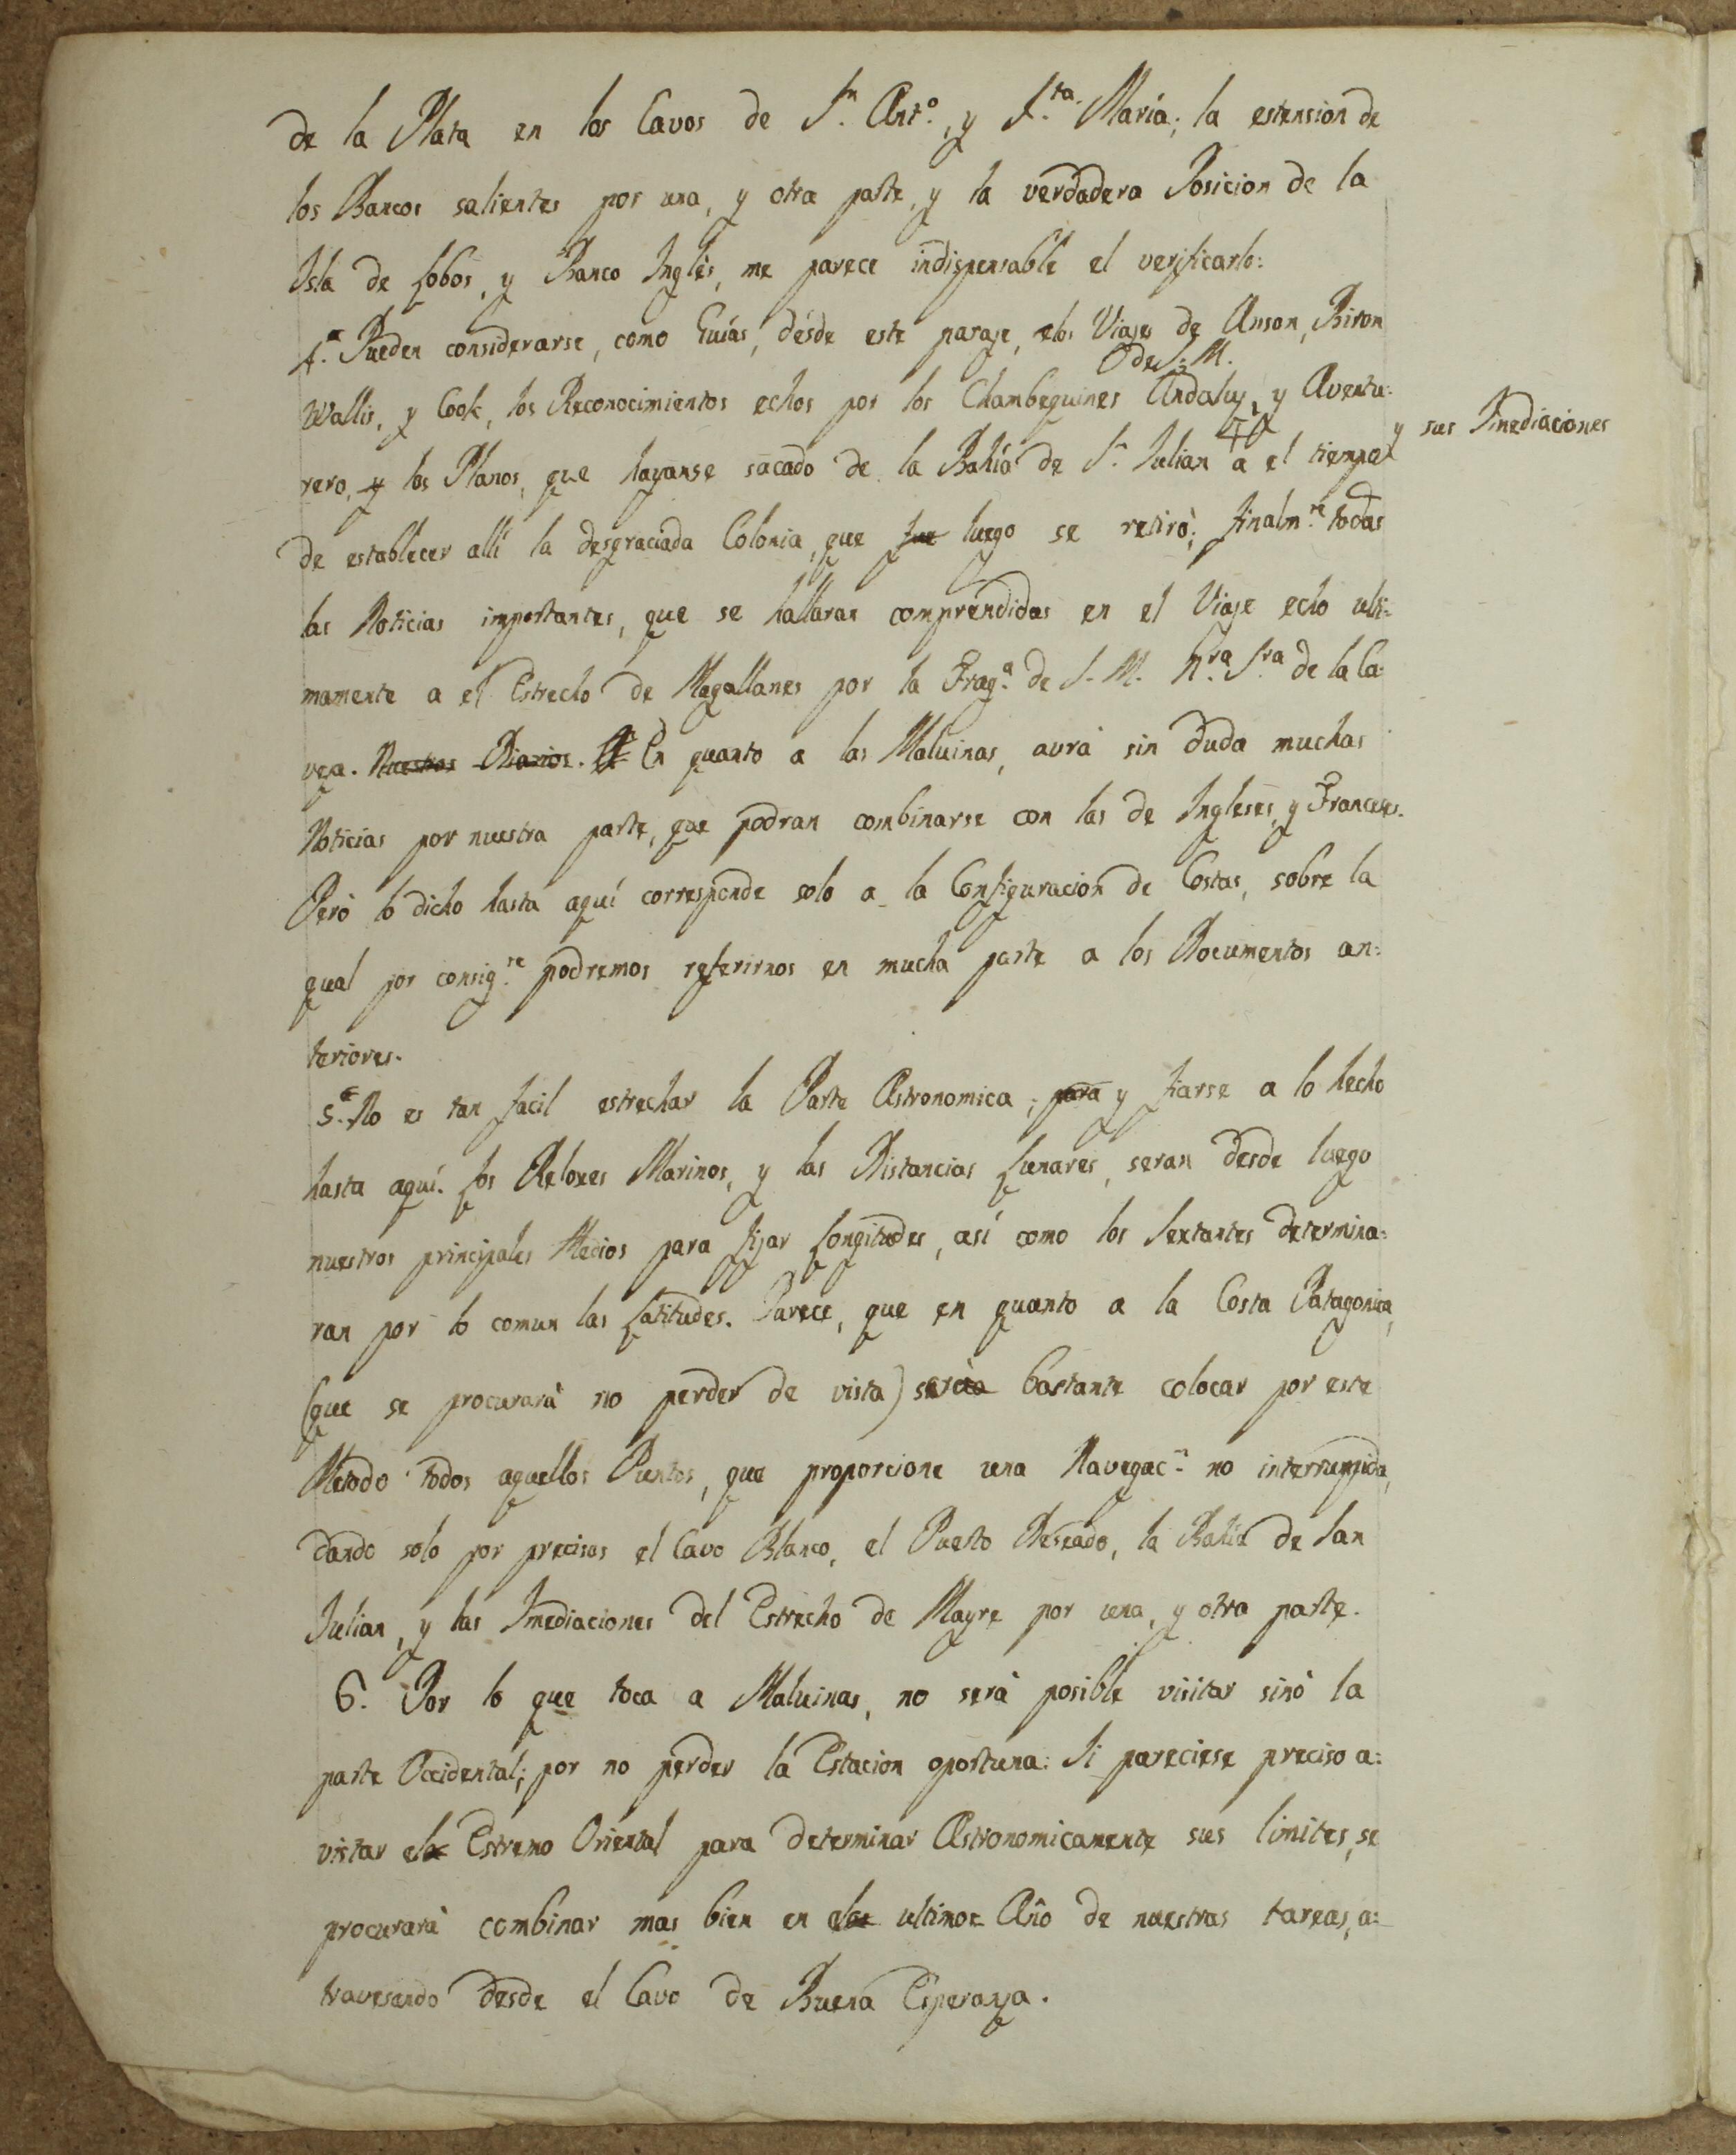 de la Plata en los Cavos de Sn. Anto., y Sta. María; la estension de
los Bancos salientes por una, y otra parte, y la verdadera Posicion de la
Isla de Lobos, y Banco Inglès, me parece indispensable el verificarlo:
4.a Pueden considerarse, como Guías, désde este parage, los Viages de Anson, Biron
de S. M.
Wallis, y Cook, los Reconocimientos echos por los Chambequines Andaluz, y Aventu:
y sus Imediaciones
rero, y los Planos, que hayanse sacado de la Bahía de Sn. Julian a el tiempo
de establecer allí la desgraciada Colonia, que fue luego se retirò; finalmte. todas
las Noticias importantes, que se hallaran comprendidas en el Viage echo ulti:
mamente a el Estrecho de Magallanes por la Frag.a de S. M. Nra. Sra. de la Ca:
veza. Nuestros Diarios. En quanto a las Maluinas, aurà sin duda muchas
Noticias por nuestra parte, que podran combinarse con las de Ingleses, y Franceses.
Pero lo dicho hasta aquí corresponde solo a la Configuracion de Costas, sobre la
qual por consigte. podremos referirnos en mucha parte a los Documentos an:
teriores.
5.a No es tan facil estrechar la Parte Astronomica; para y fiarse a lo hecho
hasta aquí. Los Reloxes Marinos, y las Distancias Lunares, seran desde luego
nuestros principales Medios para fijar Longitudes, así como los Sextantes determina:
ran por lo comun las Latitudes. Parece, que en quanto a la Costa Patagonica,
(que se procurarà no perder de vista) serìa bastante colocar por este
Metodo todos aquellos Puntos, que proporcione una Navegacn. no interrumpida,
dando solo por precisos el Cavo Blanco, el Puerto Deseado, la Bahìa de San
Julian, y las Imediaciones del Estrecho de Mayre por una, y otra parte.
6. Por lo que toca a Maluinas, no serà posible visitar sinò la
parte Occidental; por no perder la Estacion oportuna: Si pareciese preciso a:
vistar el Estremo Oriental para determinar Astronomicamente sus limites, se
procurarà combinar mas bien en el ultimo Año de nuestras tareas, a:
travesando desde el Cavo de Buena Esperanza.